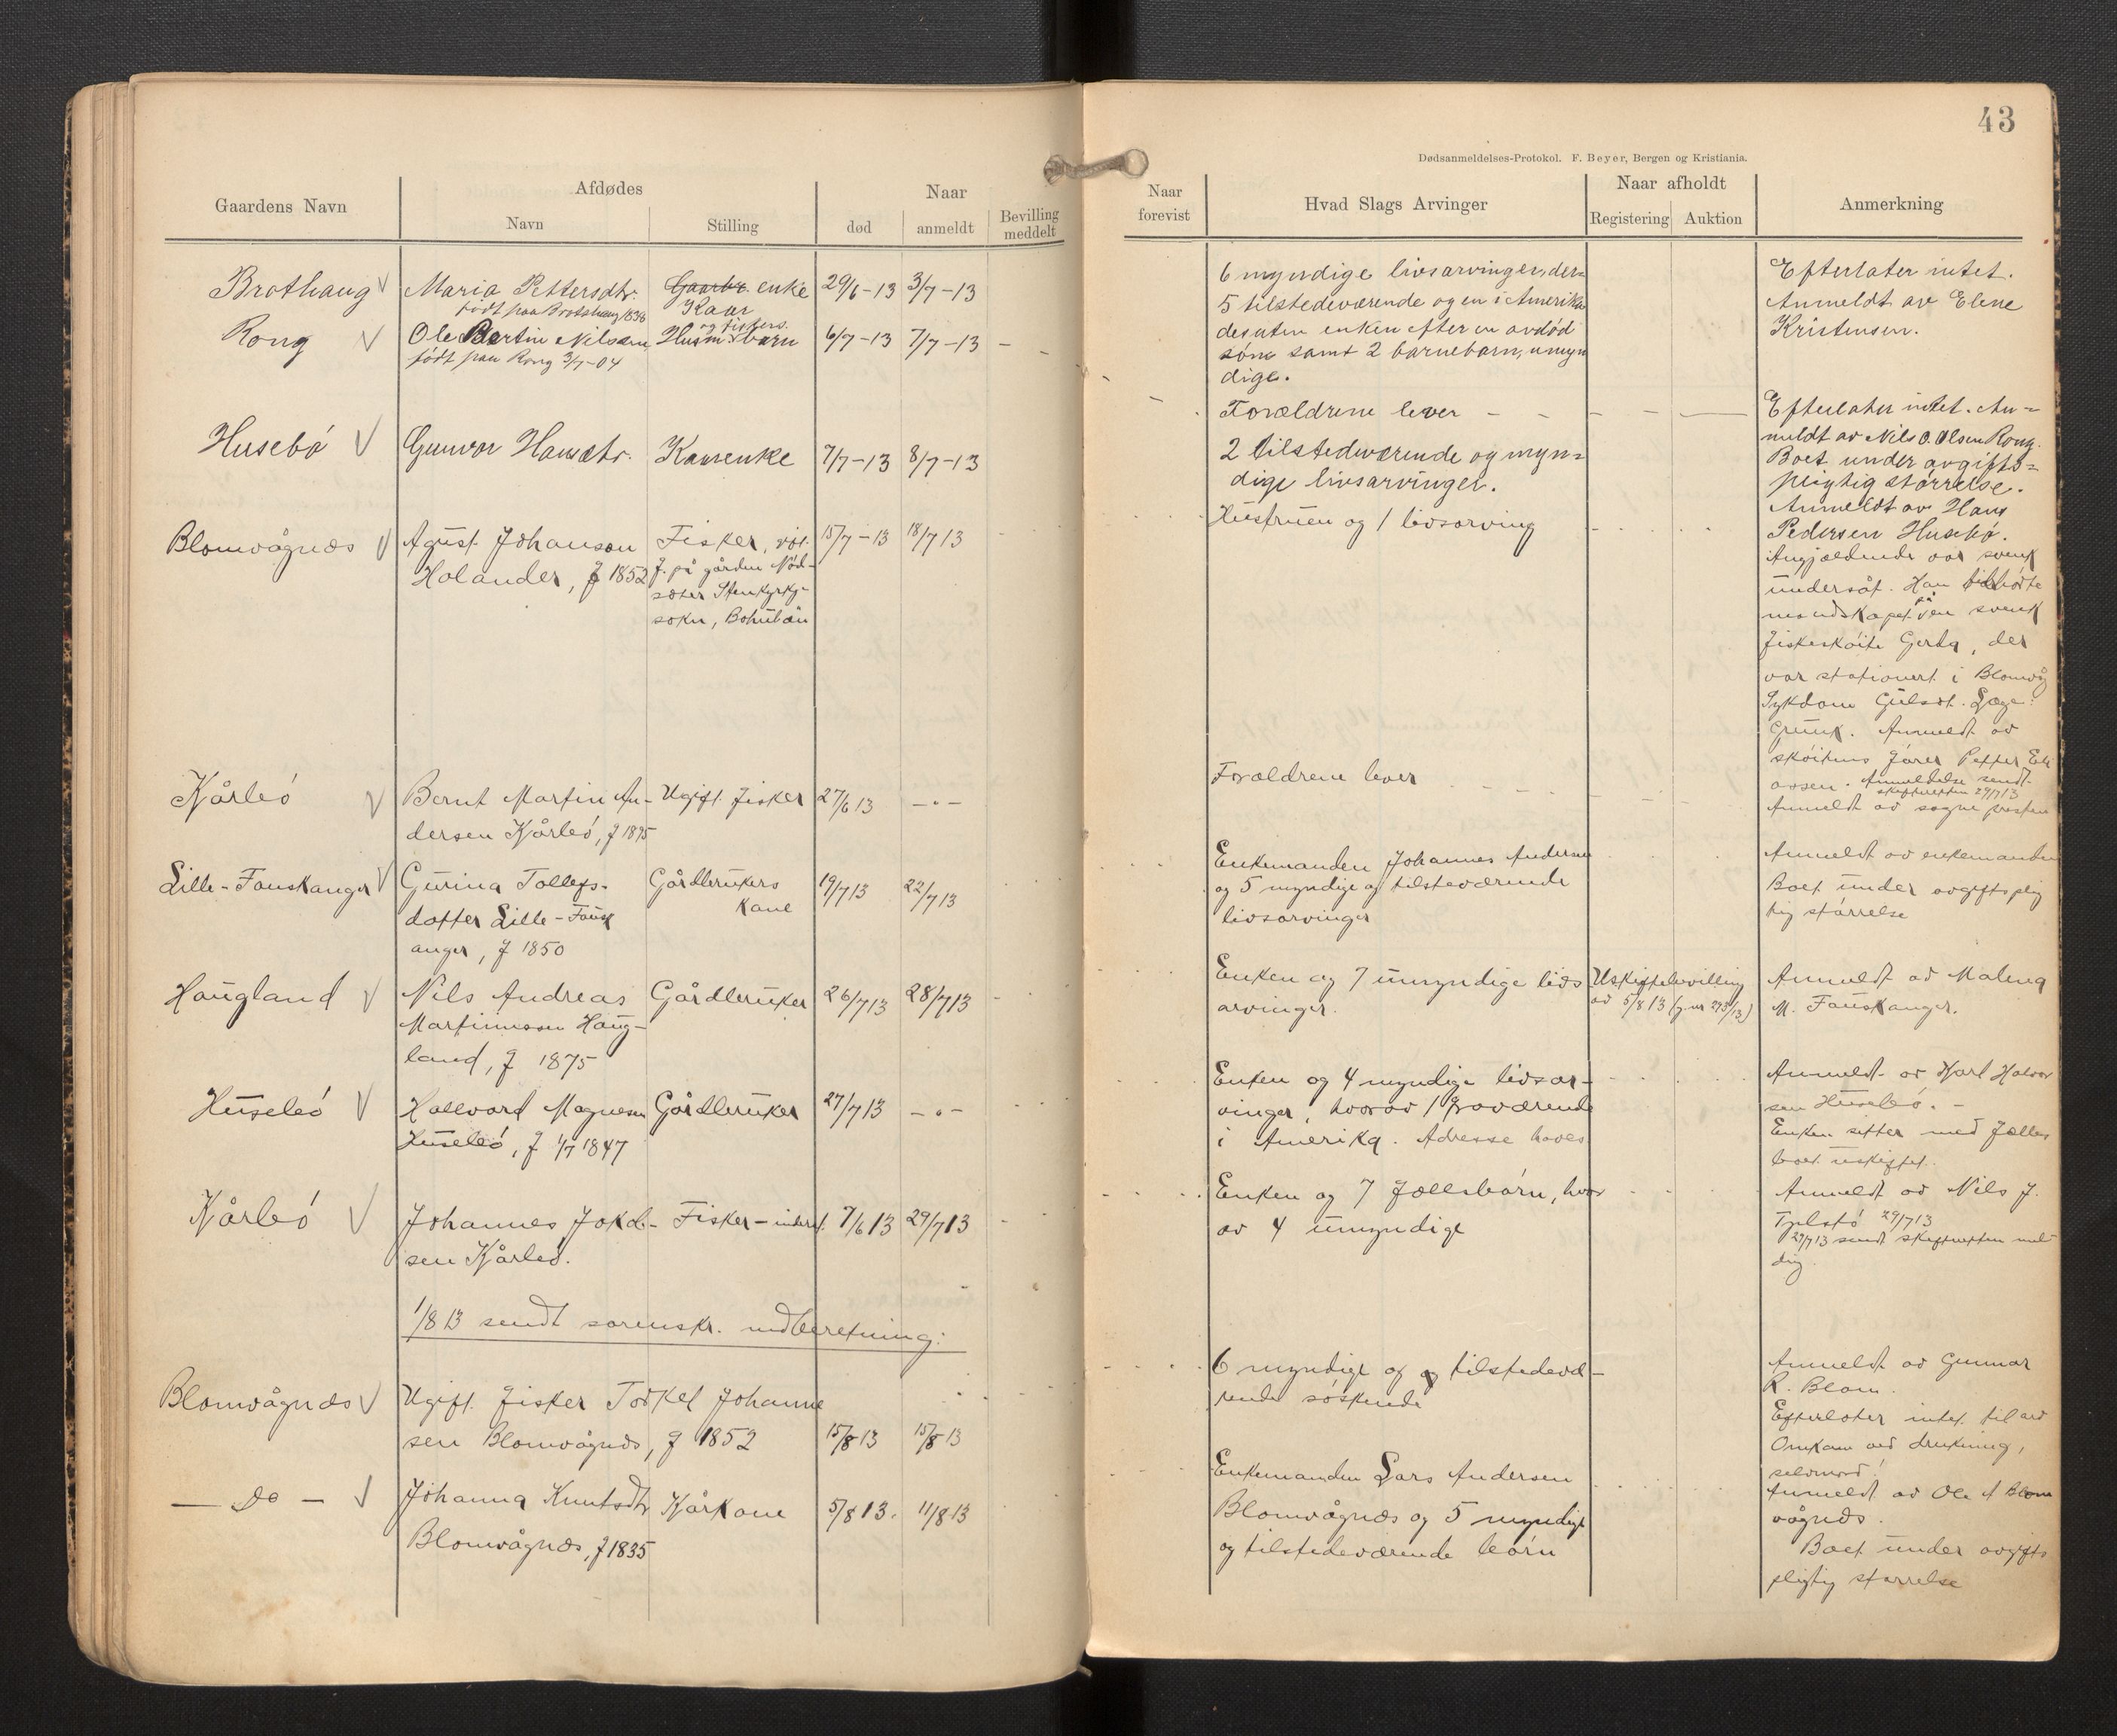 43
Dødsanmeldelses-Protokol. F. Beyer, Bergen og Kristiania.
Gaardens Navn
Afdødes
Navn
Stilling
Naar
død
anmeldt
Bevilling
meddelt
Naar
forevist
Hvad Slags Arvinger
Naar afholdt
Registering
Auktion
Anmerkning
Brothaug
Maria Pettersdtr.
født paa Brothaug 1838
Gaarbr. enke
Kaar
29/6-13
3/7-13
6 myndige livsarvinger, der-
5 tilstedeværende og en i Amerika
desuten enken efter en avdød
søn samt 2 barnebarn, umyn
dige.
Efterlater intet.
Anmeldt av Elene
Kristensen.
Rong
Ole Bertin Nilsen
født paa Rong 3/7-04
og fiskers.
Husm barn
6/7-13
7/7-13
Forældrene lever
Efterlater intet. An-
meldt av Nils O. Olsen Rong.
Husebø
Gunvor Hansdtr.
Kaarenke
7/7-13
8/7-13
2 tilstedeværende og myn-
dige livsarvinger.
Boet under avgifts-
pligtig størrelse.
Anmeldt av Hans
Pedersen Husebø.
Blomvågnæs
Agust Johanson
Holander, f 1852
Fisker,
f. på gården Nöd-
sæter Stenkyrky-
sokn, Bohuslän
15/7-13
18/7 13
Hustruen og 1 livsarving
Angjældende var svensk
undersåt. Han tilhørte
mandskapet på den svensk
fiskeskøite Gerda, der
var stationert i Blomvåg
Sykdom Gulsot. Læge:
Grunk. Anmeldt av
skøitens fører Petter Ek
Anmeldelse sendt
skifteretten 29/7 13
Kårbø
Bernt Martin An-
dersen Kårbø, f 1895
Ugift fisker
27/6 13
-"-
Forældrene lever
Anmeldt av sogne presten
Lille-Fauskanger
Gurina Tollefs-
datter Lille-Fausk
anger, f 1850
Gårdbrukers
Kone
19/7 13
22/7 13
Enkemanden Johannes Andersen
og 5 myndige og tilsteværende
livsarvinger
Anmeldt av enkemanden
Boet under avgiftsplig
tig størrelse
Haugland
Nils Andreas
Martinusson Haug-
land, f 1875
Gårdbruker
26/7 13
28/7 13
Enken og 7 umyndige livs
arvinger.
Uskiftebevilling
av 5/8 13 (g.nr 293/13)
Anmeldt av Malena
M. Fauskanger.
Husebø
Hallvard Magnesen
Husebø, f 1/7 1847
Gårdbruker
27/7 13
-"-
Enken og 4 myndige livsar-
vinger, hvorav 1 fraværende
i Amerika. Adresse haves
Anmeldt av Karl Halvor
sen Husebø. -
Enken sitter med fælles
boet uskiftet.
Kårbø
Johannes Jakob-
sen Kårbø.
Fisker - inderst.
7/6 13
29/7 13
Enken og 7 fællsbørn, hvor
av 4 umyndige
Anmeldt av Nils J.
Tjelstø 29/7 13
29/7 13 sendt skifteretten mel
ding
1/8 13 sendt sorenskr. indberetning:
Blomvågnæs
Ugift fisker Torkel Johanne
sen Blomvågnæs, f 1852
15/8 13
15/8 13
6 myndige og tilstedevæ-
rende søskende
Anmeldt av Gunnar
R. Blom.
Efterlater intet til arv
Omkom ved drukning,
selvmord!
- Do -
Johanna Knutsdtr
Blomvågnæs, f 1835
Kårkone
5/8 13.
11/8 13
Enkemanden Lars Andersen
Blomvågnæs og 5 myndige
og tilstedeværende børn
Anmeldt av Ole A Blom
vågnæs.
Boet under avgifts
pligtig størrelse